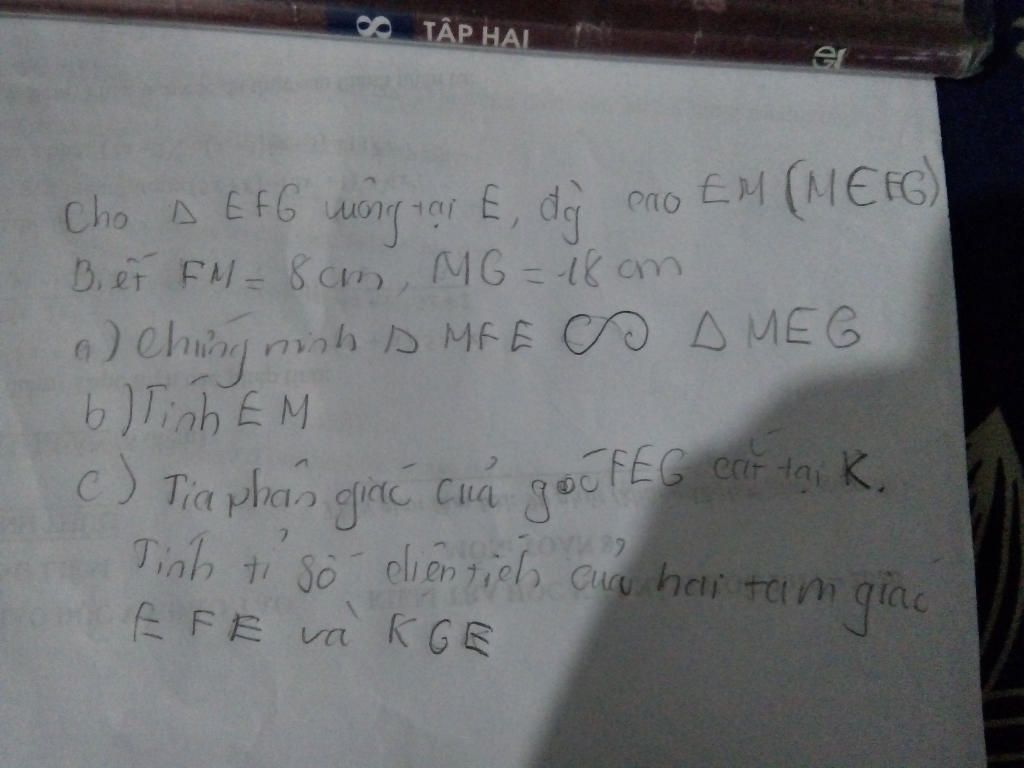 8 TẬP HAI
Cho Δ EFG vuông tại E, đg cao EM (M ∈ FG)
Biết FM = 8 cm, MG = 18 cm
a) Chứng minh Δ MFE ∽ Δ MEG
b) Tính EM
c) Tia phân giác của góc FEG cắt tại K.
Tính tỉ số diện tích của hai tam giác
EFE và KGE